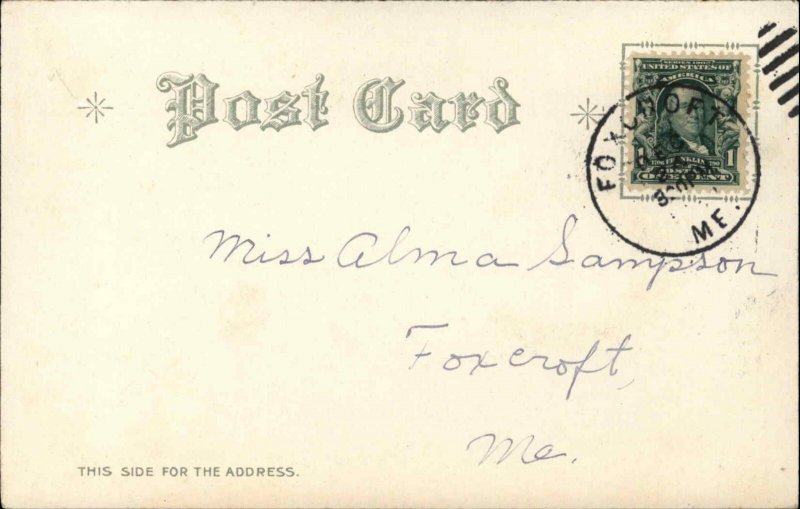 Post Card
SERIES 1902
UNITED STATES OF
AMERICA
1 FRANKLIN 1
POSTAGE
ONE CENT
FOXCROFT
DEC
ME.
Miss Alma Sampson,
Foxcroft,
Me.
THIS SIDE FOR THE ADDRESS.